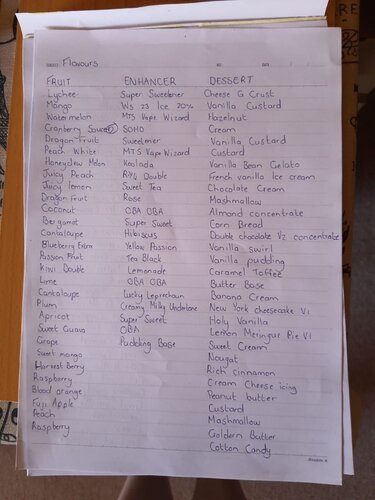 Flavours
FRUIT ENHANCER DESSERT
Lychee Super Sweetener Cheese G Crust
Mango Ws 23 Ice 20% Vanilla Custard
Watermelon MTS Vape Wizard Hazelnut
Cranberry Sauce SOHO Cream
Dragon Fruit Sweetner Vanilla Custard
Peach White MTS Vape Wizard Custard
Honeydew Melon Koolada Vanilla Bean Gelato
Juicy Peach Double French vanilla Ice cream
Juicy lemon Sweet Tea Chocolate Cream
Dragon Fruit Rose Mashmallow
Coconut OBA OBA Almond concentrate
Bergamot Super Sweet Corn Bread
Cantaloupe Hibiscus Double chocolate V2 concentrate
Blueberry Extra Yellow Passion Vanilla swirl
Passion Fruit Tea Black Vanilla pudding
Kiwi Double Lemonade Caramel Toffee
Lime OBA OBA Butter Base
Cantaloupe Lucky Leprechaun Banana Cream
Plum Creamy Milky Undertone New York cheesecake V1
Apricot Super Sweet Holy Vanilla
Sweet Guava OBA Lemon Meringue Pie V1
Grape Pudding Base Sweet Cream
Sweet mango Nougat
Harvest Berry Rich cinnamon
Raspberry Cream Cheese icing
Blood orange Peanut butter
Fuji Apple Custard
Peach Mashmallow
Raspberry Goldern Butter
Cotton Candy